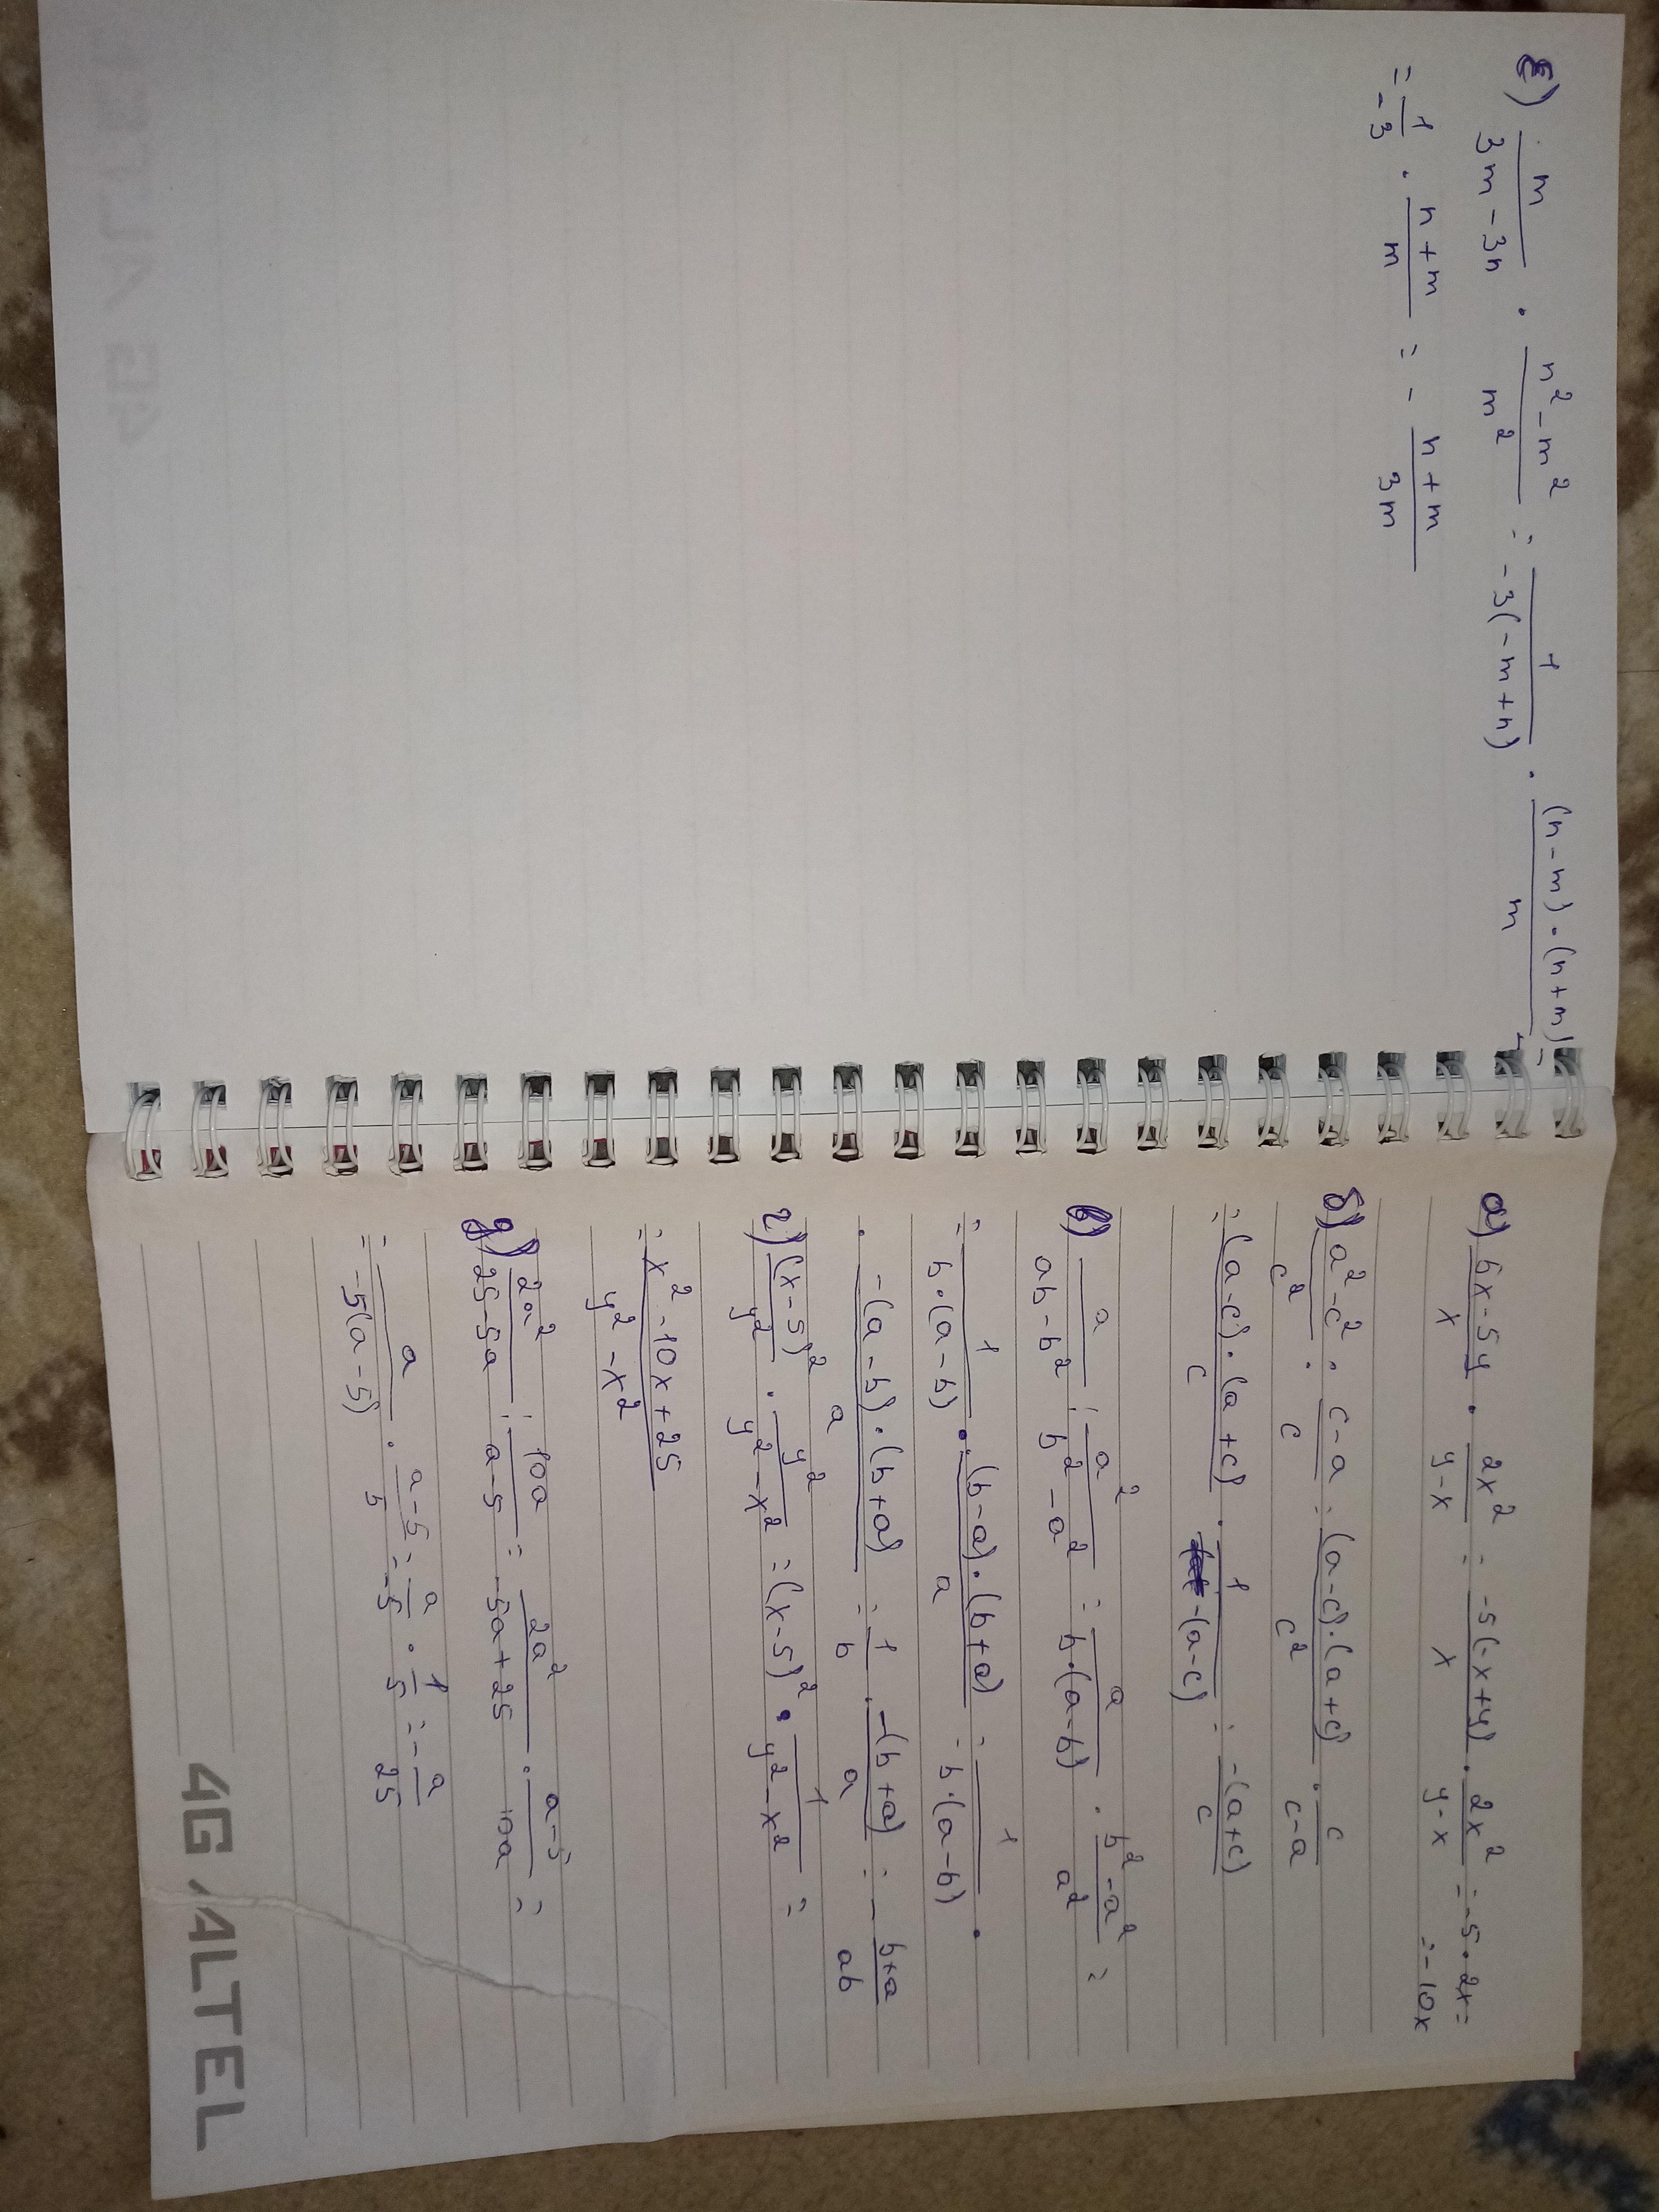 а) 5x-5y/x · 2x²/y-x = -5(-x+y)/x · 2x²/y-x = -5·2x=
=-10x
б) a²-c²/c² : c-a/c = (a-c)·(a+c)/c² · c/c-a
= (a-c)·(a+c)/c · 1/-(a-c) = -(a+c)/c
в) a/ab-b² : a²/b²-a² = a/b·(a-b) · b²-a²/a² =
= 1/b·(a-b) · (b-a)·(b+a)/a = 1/b·(a-b) ·
· -(a-b)·(b+a)/a = 1/b · -(b+a)/a = - b+a/ab
г) (x-5)²/y² · y²/y²-x² = (x-5)² · 1/y²-x² =
= x²-10x+25/y²-x²
д) 2a²/25-5a : 10a/a-5 = 2a²/-5a+25 · a-5/10a =
= a/-5(a-5) · a-5/5 = a/-5 · 1/5 = - a/25
4G ALTEL
Е) m/3m-3n · n²-m²/m² = 1/-3(-m+n) · (n-m)·(n+m)/m =
= 1/-3 · n+m/m = - n+m/3m